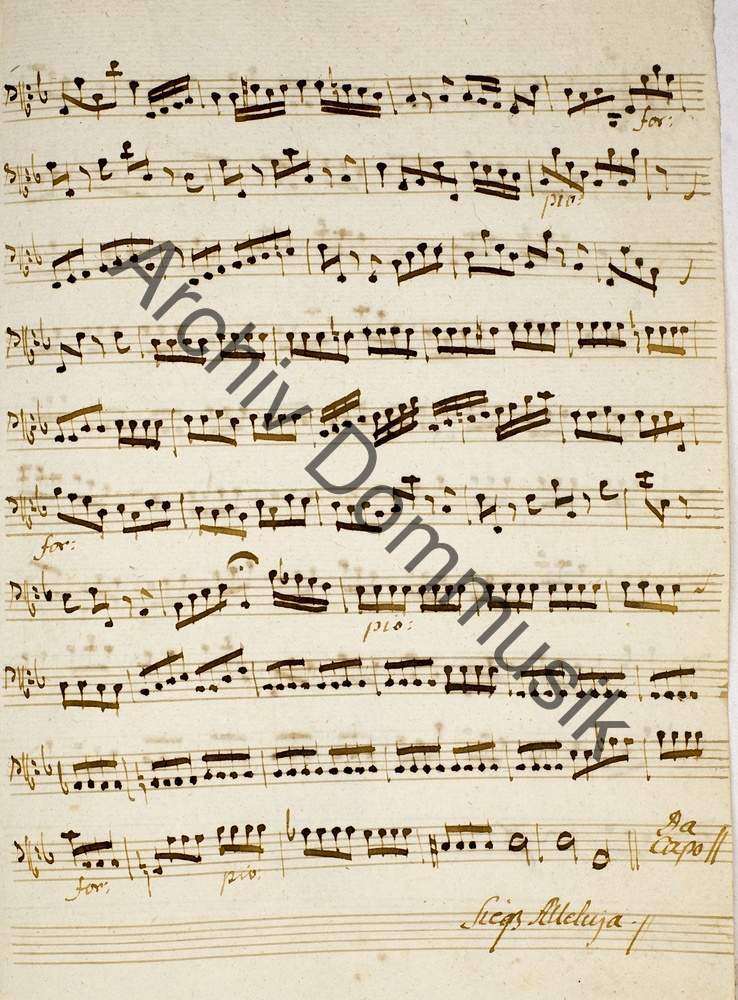 for:
pio:
for:
pio:
for:
pio:
Da
Capo
Alleluja
Archiv Dommusik